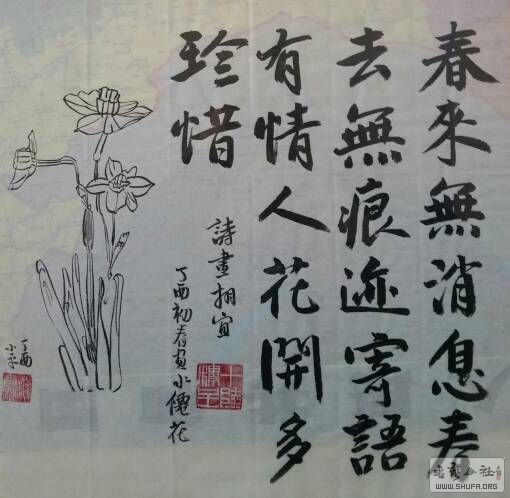 春來無消息春
去無痕迹寄語
有情人花開多
珍惜
詩畫相宜
丁酉初春畫水僊花
丁酉
小平
書藝公社
WWW.SHUFA.ORG